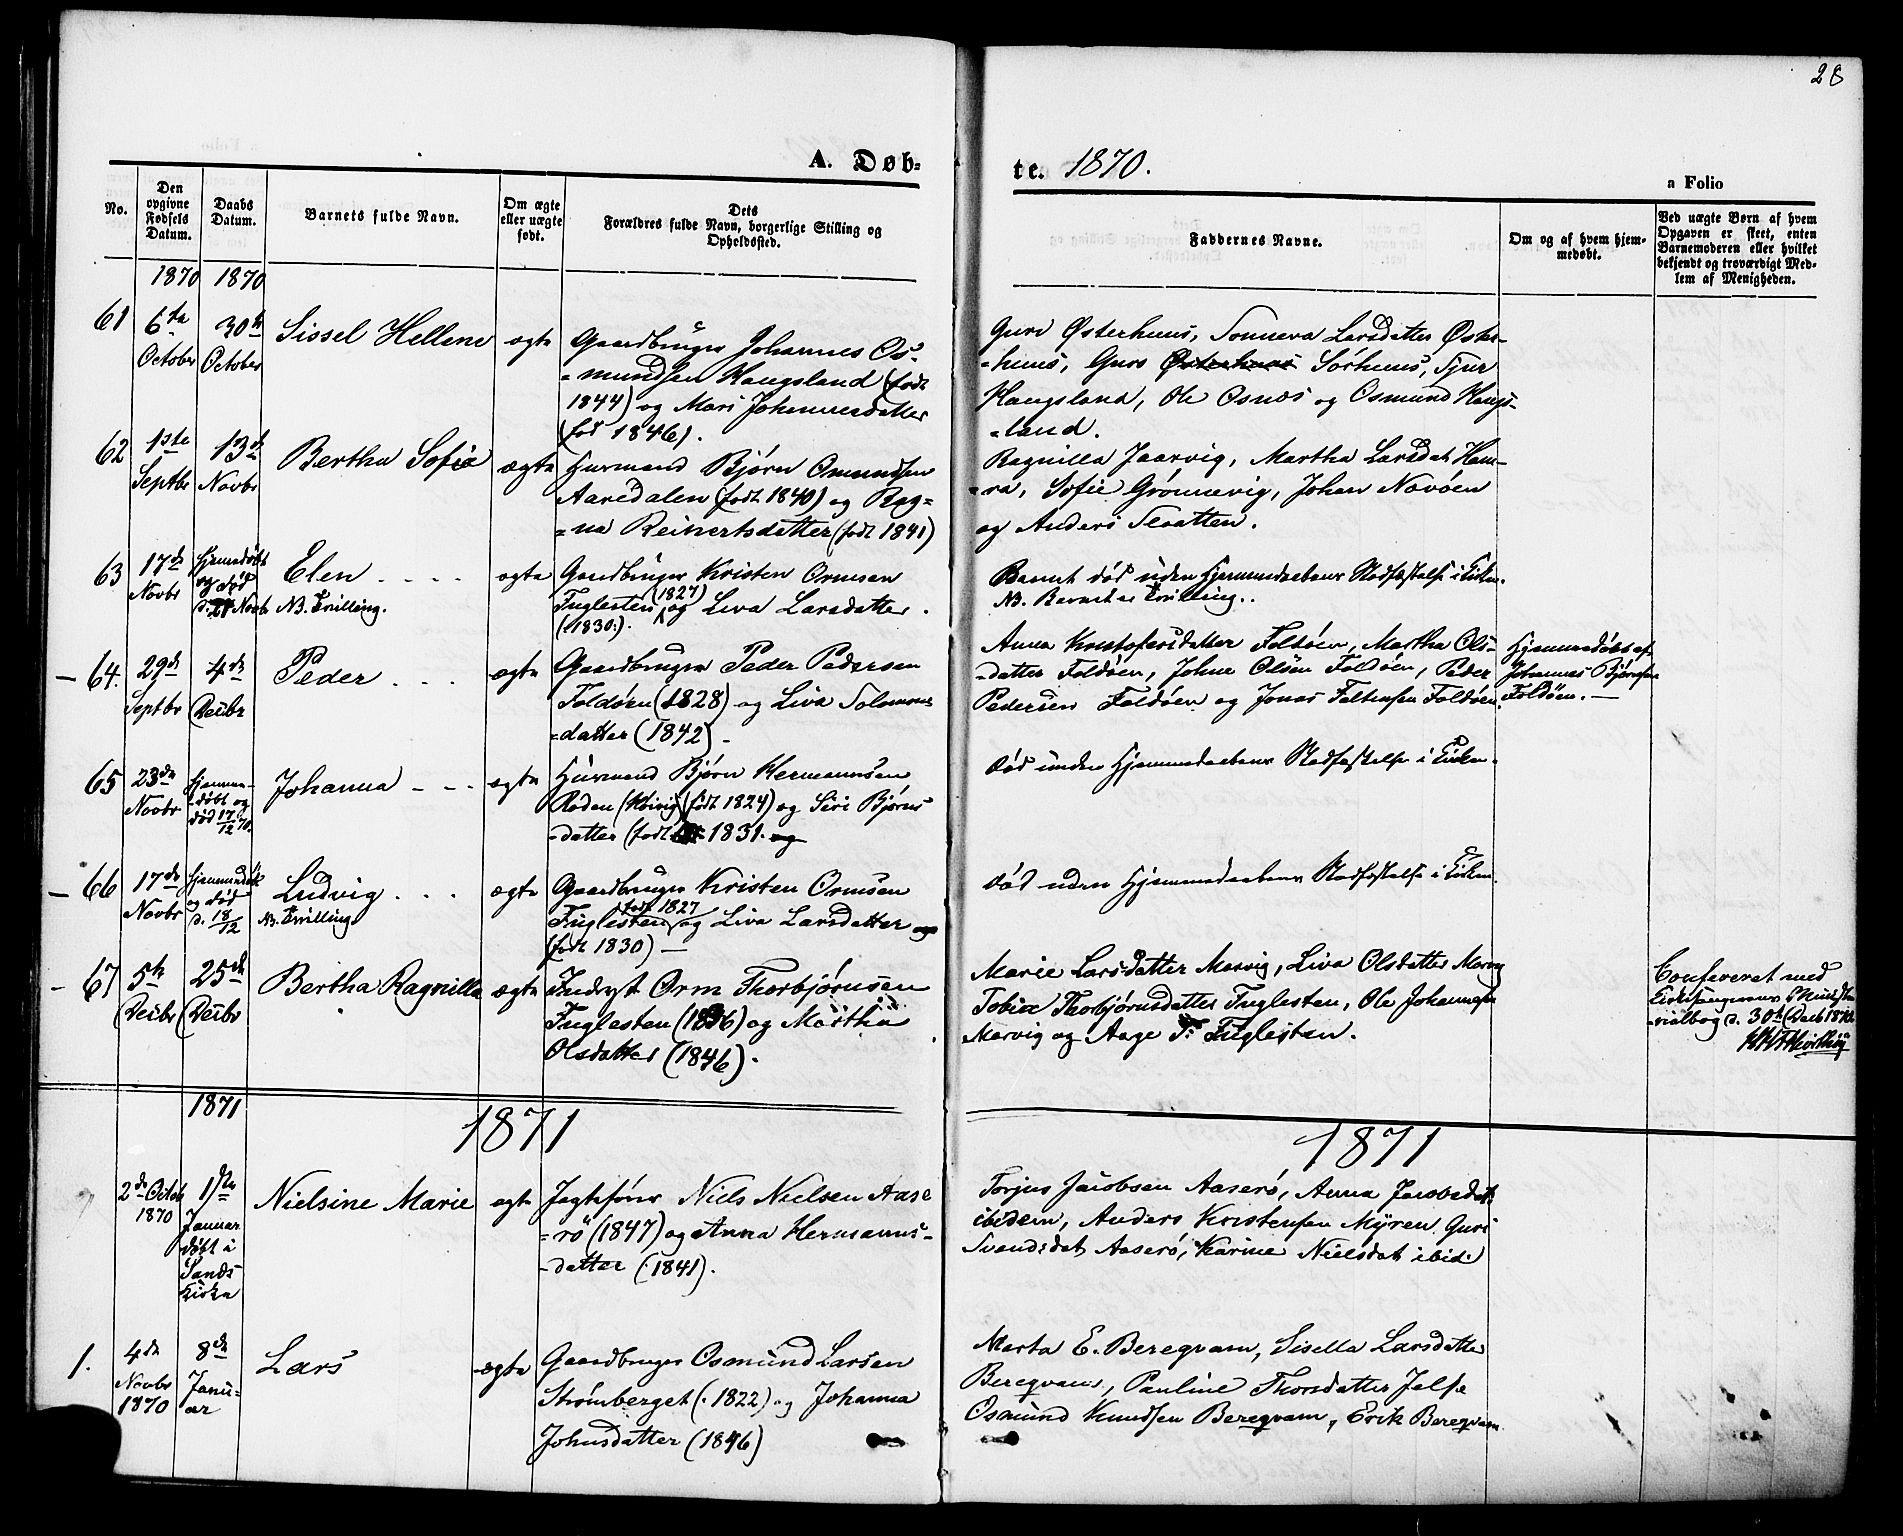 28
A. Døb-
te. 1870.
a Folio
No.
Den opgivne Fødsels Datum.
Daabs Datum.
Barnets fulde Navn.
Om ægte eller uægte født.
Dets Forældres fulde Navn, borgerlige Stilling og Opholdssted.
Faddernes Navne.
Om og af hvem hjemmedøbt.
Ved uægte Børn af hvem Opgaven er skeet, enten Barnemoderen eller hvilket bekjendt og troværdigt Medlem af Menigheden.
1870 1870
61 6te October 30te October Sissel Hellene ægte
Gaardbruger Johannes Os-
=mundsen Haugsland (født
1844) og Mari Johannesdatter
(fød 1846).
Guri Østerhuus, Sonneva Larsdatter Øster-
=huus, Guro Østerhuus Sørhuus, Sjur
Haugsland, Ole Osnes og Osmund Haugs-
=land.
62 1ste Septbr 13de Novbr Bertha Sofia ægte
Huusmand Bjørn Omundsen
Aaredalen (født 1840) og Rag=
=na Reinertsdatter (født 1841)
Ragnilla Jaarvig, Martha Larsdat Ham-
=ra, Sofie Grønnevig, Johan Novøen
og Anders
63 17de Novbr Hjemmedøbt og død Novbr Elen
NB. Tvilling. ægte
Gaardbruger Kristen Ormsen
Fuglesten (1827) og Liva Larsdatter.
(1830).
Barnet død uden Hjemmedaabens Stadfæstelse i Kirken.
NB. Barnet er Tvilling.
64. 29de Septbr 4de Decbr Peder ægte
Gaardbruger Peder Pedersen
Foldøen (1828) og Liva Solomons
=datter (1842)
Anna Kristofersdatter Foldøen, Martha Ols-
=datter Foldøen, Johne Olsen Foldøen, Peder
Pedersen Foldøen og Jonas Foldøen.
Hjemmedøbt af
Johannes Bjørnsen
Foldøen.
65 23de Novbr Hjemme-
=døbt og
død 17/12 70. Johanna ægte
Huusmand Bjørn Hermannsen
født 1824) og Siri Bjørns
=datter (født 1831. og
Død uden Hjemmedaabens Stadfæstelse i Kirken.
66 17de Novbr Hjemmedøbt
og død
d. 18/12 Ludvig
NB. Tvilling ægte
Gaardbruger Kristen Ormsen
Fuglesten født 1827 og Liva Larsdatter og
(født 1830)
Død uden Hjemmedaabens Stadfæstelse i Kirken.
67 5te Decbr 25de Decbr Bertha Ragnilla ægte
Inderst Orm Thorbjørnsen
Fuglesten (1836) og Martha
Olsdatter (1846).
Marie Larsdatter Marvig, Liva Olsdatter Marvig
Tobia Thorbjørnsdatter Fuglesten, Ole Johannesen
Marvig og Aage T. Fuglesten.
Confereret med
Kirkesangerens Ministe-
=rialbog d. 30te Decb 1870
1871
1871
1871
2de Octob
1870 1ste
Januar
døbt i
Sands
Kirke Nielsine Marie ægte
Jagtefører Niels Nielsen Aase
=rø (1847) og Anna Hermanns-
=datter (1841).
Torjus Jacobsen Aaserø, Anna Jacobsdat.
ibidem, Anders Kristensen Myren Guri
Svendsdat Aaserø, Karine Nielsdat ibid.
1. 4de
Novbr
1870 8de
Janu-
ar Lars ægte
Gaardbruger Osmund Larsen
Strømberget (1822) og Johanna
Johnsdatter (1846)
Marta E. Beregvam, Sisella Larsdatter
Beregvam, Pauline Thorsdatter Jelse
Osmund Knudsen Beregvam, Erik Beregvam